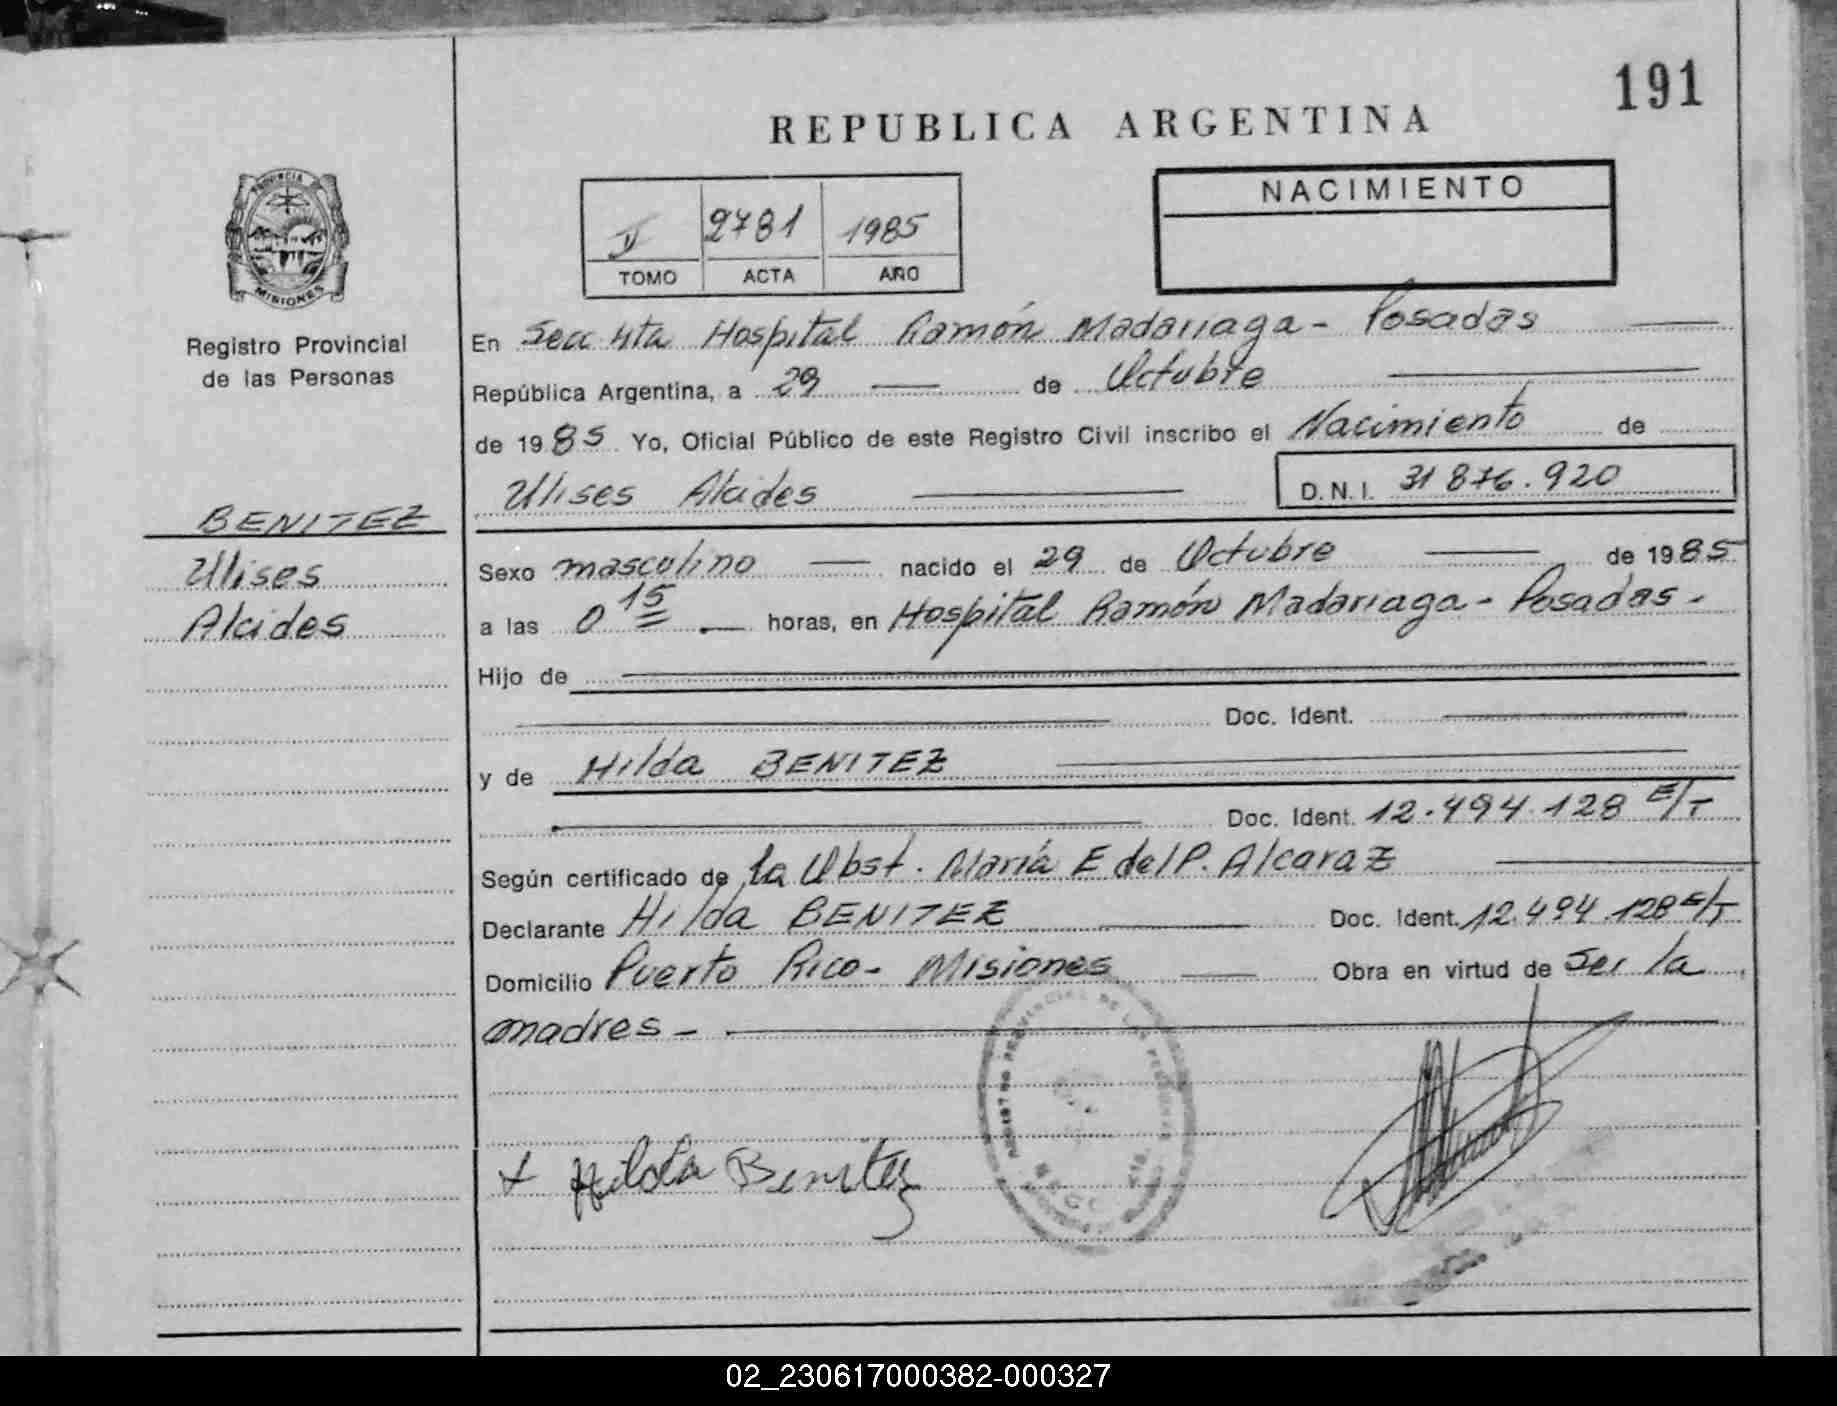 191
REPUBLICA ARGENTINA
PROVINCIA DE
MISIONES
Registro Provincial
de las Personas
2781 1985
TOMO ACTA AÑO
NACIMIENTO
En Secc 4ta Hospital Ramón Madariaga - Posadas
República Argentina, a 29 de Octubre
de 1985 Yo, Oficial Público de este Registro Civil inscribo el Nacimiento de
Ulises Alcides D.N.I. 31 876.920
BENITEZ
Ulises
Alcides
Sexo masculino nacido el 29 de Octubre de 1985
a las 0 15 horas, en Hospital Ramón Madariaga - Posadas -
Hijo de
Doc. Ident.
y de Hilda BENITEZ
Doc. Ident. 12.494.128 E/T
Según certificado de la Obst. María E del P. Alcaraz
Declarante Hilda BENITEZ Doc. Ident. 12.494.128 E/T
Domicilio Puerto Rico - Misiones Obra en virtud de ser la
madres -
REGISTRO PROVINCIAL DE LAS PERSONAS
Hilda Benitez
02_230617000382-000327